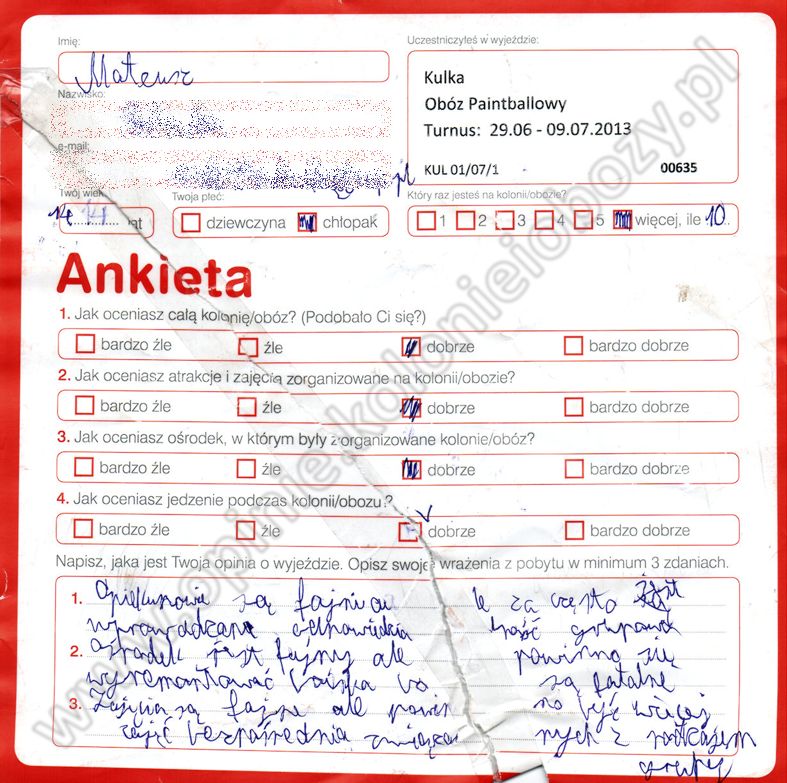 Imię:
Mateusz
Uczestniczyłeś w wyjeździe:
Kulka
Obóz Paintballowy
Turnus: 29.06 - 09.07.2013
KUL 01/07/1 00635
Nazwisko:
e-mail:
pl
Twój wiek
14 lat
Twoja płeć:
dziewczyna chłopak
Który raz jesteś na kolonii/obozie?
1 2 3 4 5 więcej, ile 10
Ankieta
1. Jak oceniasz całą kolonię/obóz? (Podobało Ci się?)
bardzo źle źle dobrze bardzo dobrze
2. Jak oceniasz atrakcje i zajęcia zorganizowane na kolonii/obozie?
bardzo źle źle dobrze bardzo dobrze
3. Jak oceniasz ośrodek, w którym były zorganizowane kolonie/obóz?
bardzo źle źle dobrze bardzo dobrze
4. Jak oceniasz jedzenie podczas kolonii/obozu?
bardzo źle źle dobrze bardzo dobrze
Napisz, jaka jest Twoja opinia o wyjeździe. Opisz swoje wrażenia z pobytu w minimum 3 zdaniach.
1. Opiekunowie są fajni le za często jest
wprowadzana odpowiedzia ność grupowa
2. Ośrodek jest fajny ale powinno się
wyremontować są fatalne
3. Zajęcia są fajne ale powin no być więcej
zajęć bezpośrednio związan nych z rodzajem
grupy
www.opinie.kolonieiobozy.pl